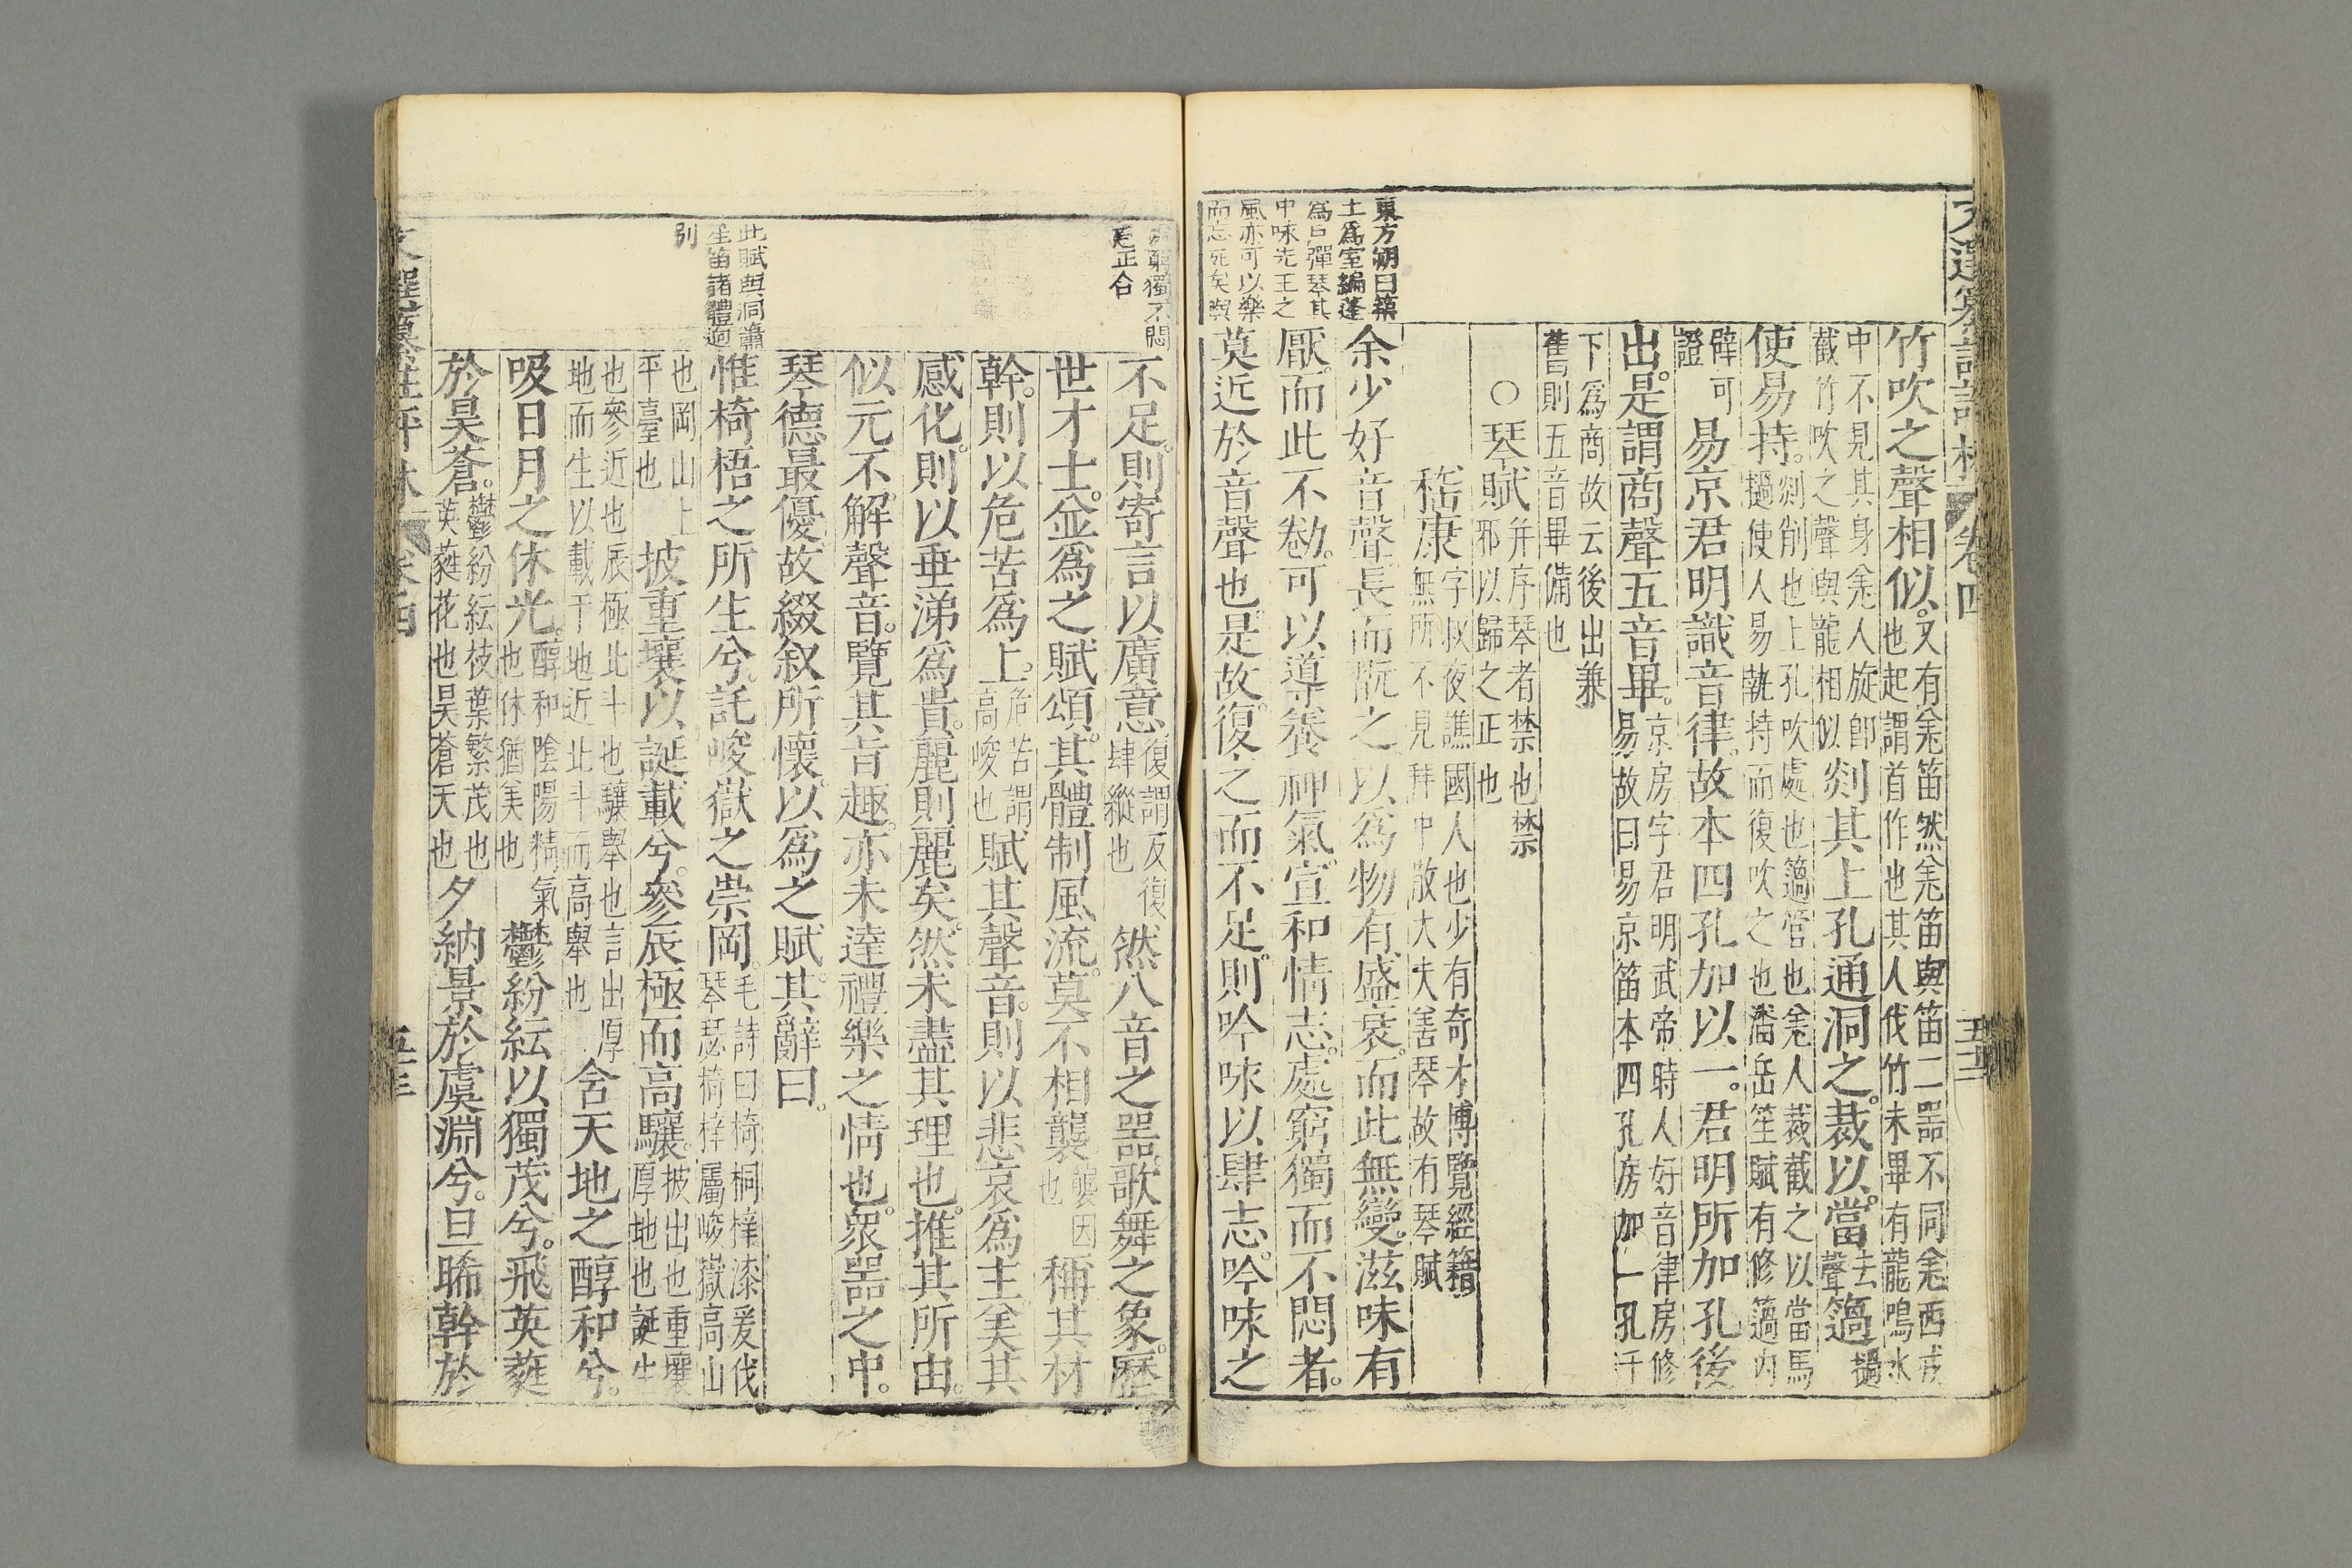 東方朔曰築
土爲室編蓬
爲戶彈琴其
中咏先王之
風亦可以樂
而忘死矣與
竹吹之聲相似又有羌笛然羌笛與笛二器不同羌西戎
也起謂首作也其人伐竹未畢有龍鳴水
中不見其身羌人旋即
截竹吹之聲與龍相似剡其上孔通洞之裁以當去聲簻撾
使易持剡削也上孔吹處也簻管也羌人裁截之以當馬
撾使人易執持而復吹之也潘岳笙賦有修簻內
辟可
證易京君明識音律故本四孔加以一君明所加孔後
出是謂商聲五音畢京房字君明武帝時人好音律房修
易故曰易京笛本四孔房加一孔于
下爲商故云後出兼
舊則五音畢備也
○琴賦并序琴者禁也禁
邪以歸之正也
嵇康字叔夜譙國人也少有奇才博覽經籍
無所不見拜中散大夫善琴故有琴賦
余少好音聲長而翫之以爲物有盛衰而此無變滋味有
厭而此不勌可以導養神氣宣和情志處窮獨而不悶者
莫近於音聲也是故復之而不足則吟咏以肆志吟咏之
文選纂註評林
卷四
五十二
處窮獨不悶
意正合
此賦與洞簫
笙笛諸體迥
別
不足則寄言以廣意復謂反復
肆縱也然八音之器歌舞之象歷
世才士並爲之賦頌其體制風流莫不相襲襲因
也稱其材
幹則以危苦爲上危苦謂
高峻也賦其聲音則以悲哀爲主美其
感化則以垂涕爲貴麗則麗矣然未盡其理也推其所由
似元不解聲音覽其旨趣亦未達禮樂之情也衆器之中
琴德最優故綴叙所懷以爲之賦其辭曰
惟椅梧之所生兮託峻嶽之崇岡毛詩曰椅桐梓漆爰伐
琴瑟椅梓屬峻嶽高山
也岡山上
平臺也披重壤以誕載兮參辰極而高驤披出也重壤
厚地也誕生
也參近也辰極北斗也驤舉也言出厚
地而生以載于地近北斗而高舉也含天地之醇和兮
吸日月之休光醇和陰陽精氣
也休猶美也鬱紛紜以獨茂兮飛英蕤
於昊蒼鬱紛紜枝葉繁茂也
英蕤花也昊蒼天也夕納景於虞淵兮旦晞幹於
文選纂註評林
卷四
五十三